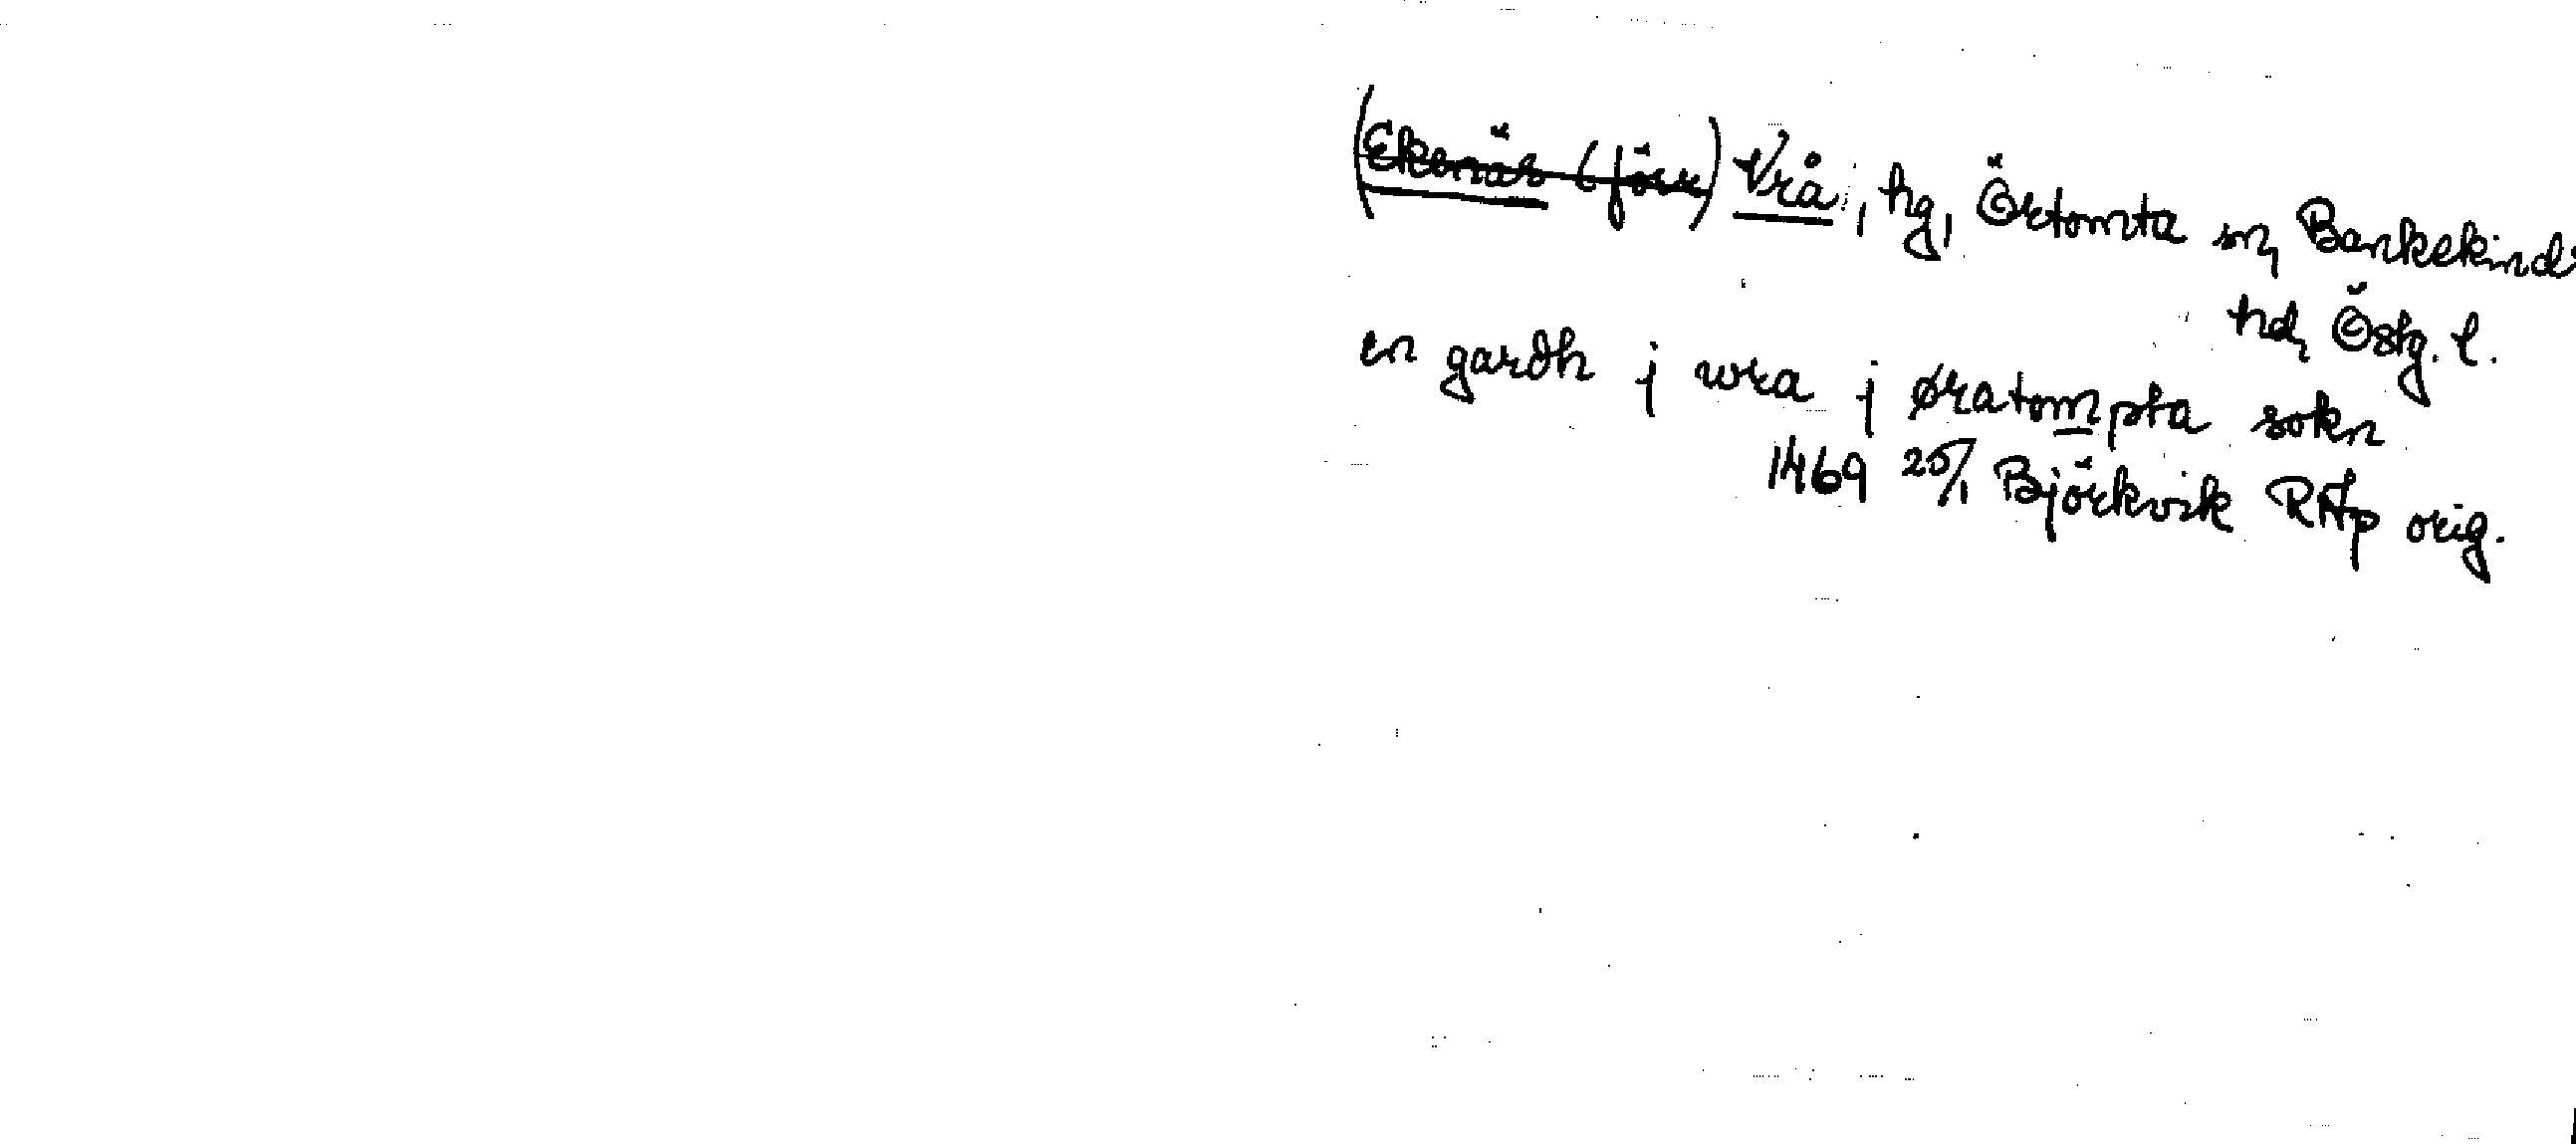 (Ekenäs (förr) Vrå, hg, Örtomta sn, Bankekinds
hd, Östg. l.
en gardh j wra j øratompta sokn
1469 25/1 Björkvik RAp orig.